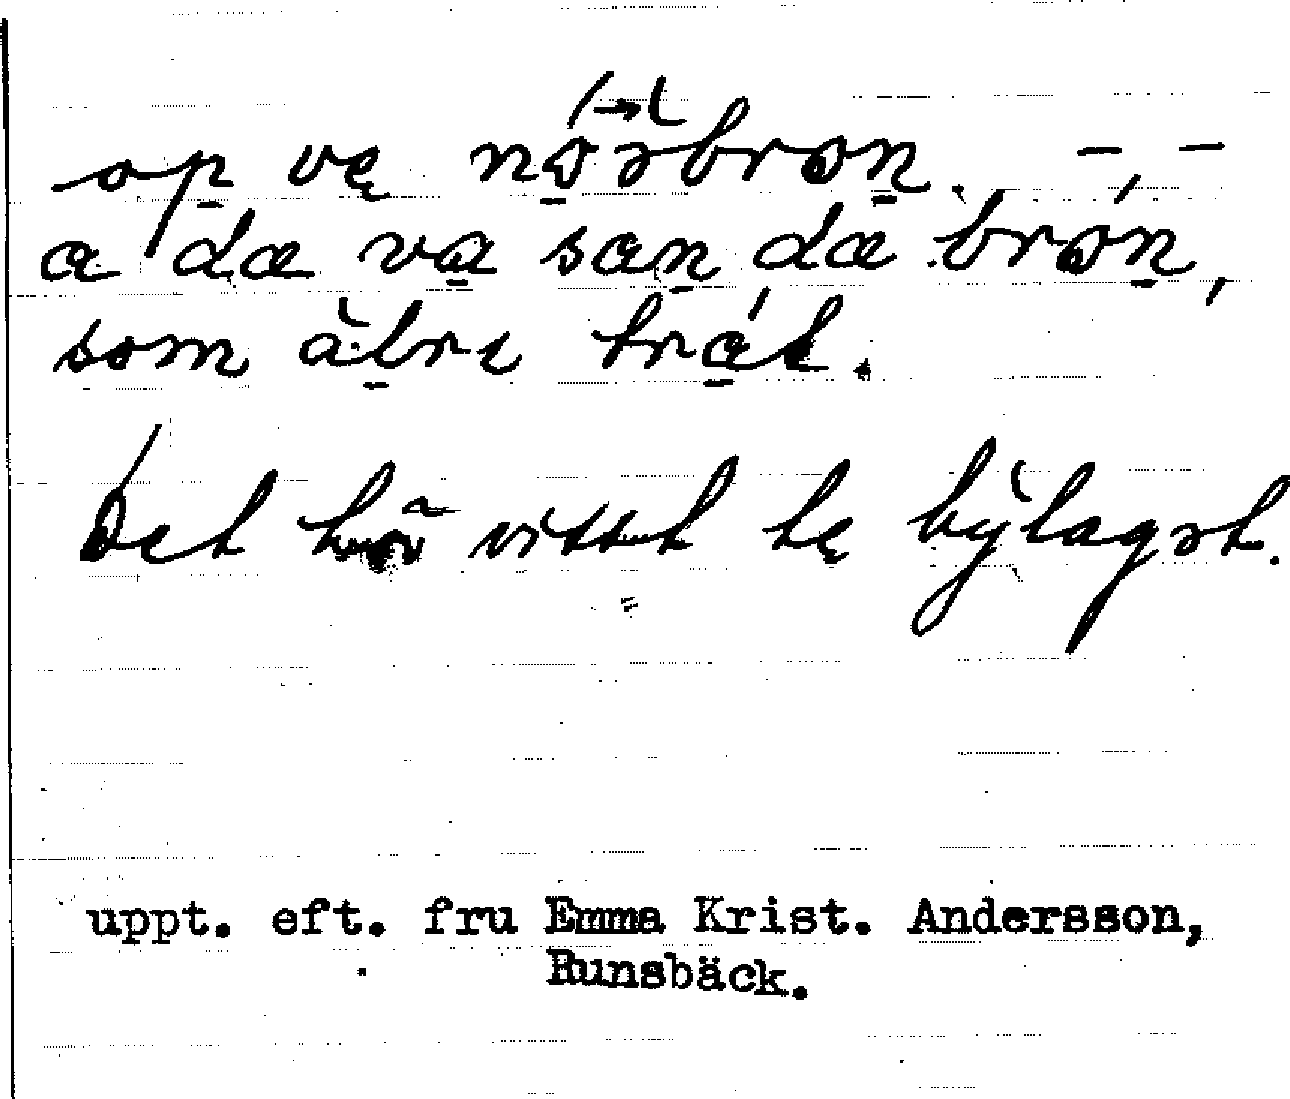 op vę nöɜbrøn. – –
a dæ va san dæ brøn,
som àlrɩ trøt.
Det hör visst te býlagɜt.
uppt. eft. fru Emma Krist. Andersson,
Runsbäck.